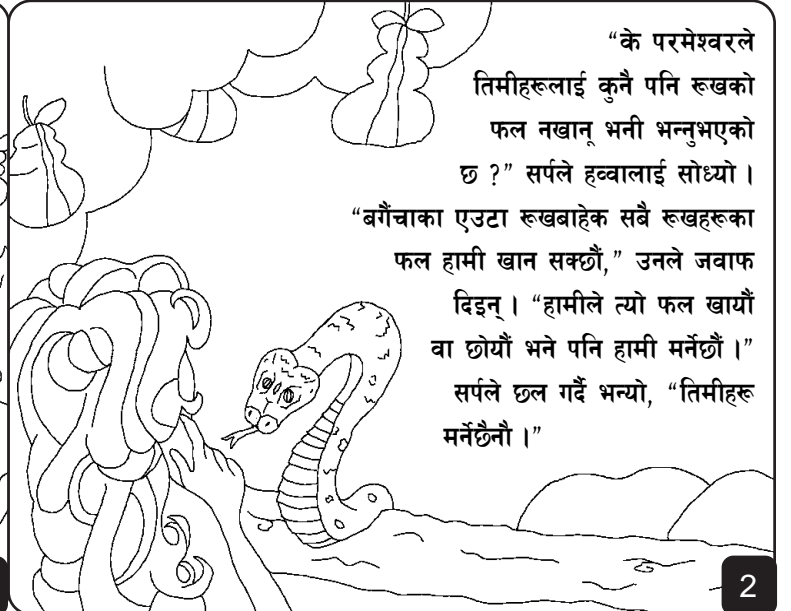 “के परमेश्वरले
तिमीहरूलाई कुनै पनि रूखको
फल नखानू भनी भन्नुभएको
छ ?” सर्पले हव्वालाई सोध्यो ।
“बगैंचाका एउटा रूखबाहेक सबै रूखहरूका
फल हामी खान सक्छौं,” उनले जवाफ
दिइन् । “हामीले त्यो फल खायौं
वा छोयौं भने पनि हामी मर्नेछौं ।”
सर्पले छल गर्दै भन्यो, “तिमीहरू
मर्नेछैनौ ।”
2